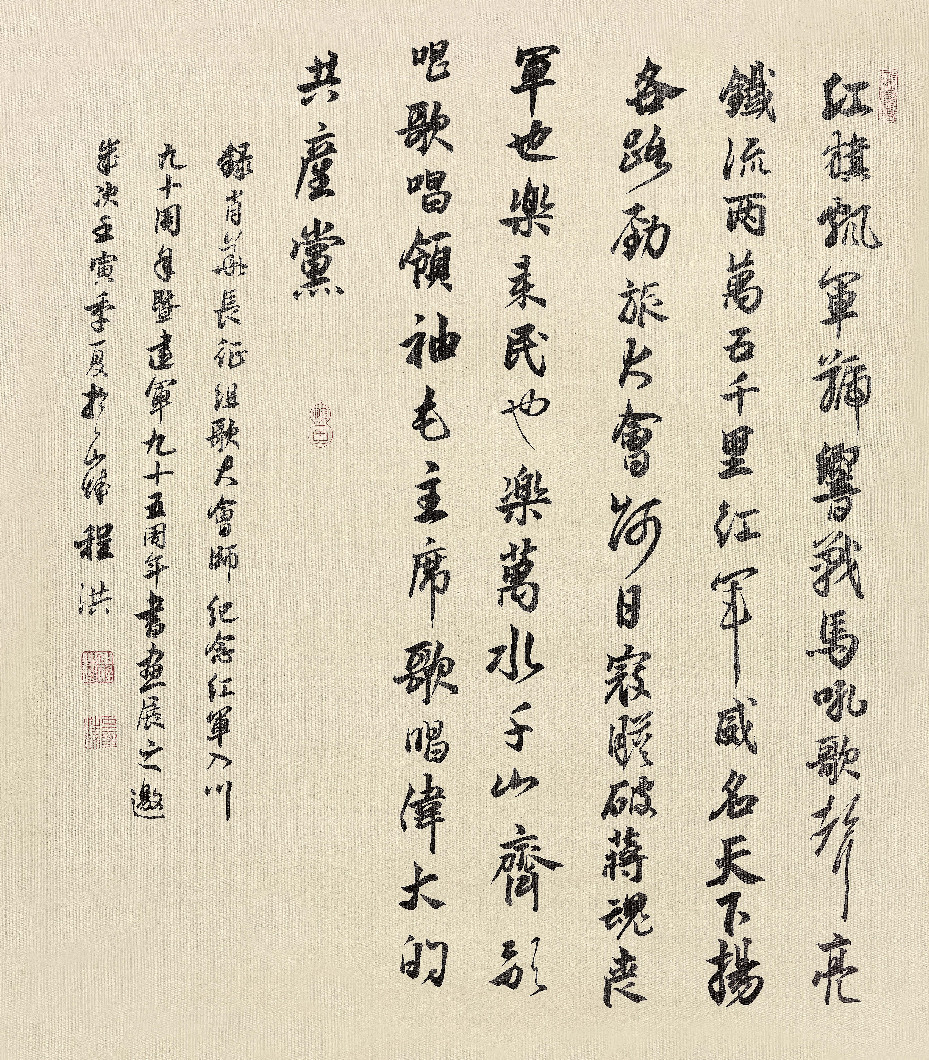 紅旗飄軍號響戰馬吼歌聲亮
鐵流两萬五千里紅軍威名天下揚
各路勁旅大會師日寇膽破蔣魂喪
軍也樂来民也樂萬水千山齊歌
唱歌唱領袖毛主席歌唱偉大的
共產黨
録肖華長征組歌大會師紀念紅軍入川
九十周年暨建軍九十五周年書畫展之邀
歲次壬寅季夏於山 程洪